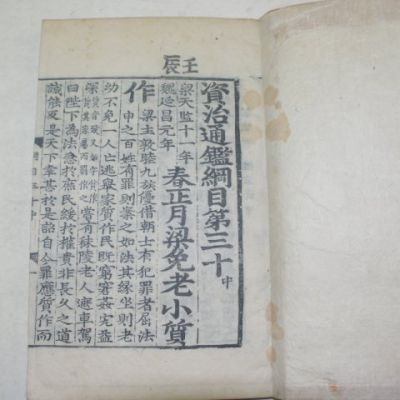 壬辰
資治通鑑綱目第三十中
梁天監十一年
魏延昌元年
春正月梁免老小質
作
梁主敦睦九族優借朝士有犯罪者屈法
申之百姓有罪則案之如法其緣坐則老
幼不免一人亡逃舉家質作民既窮窘姦宄益
深
嘗有秣陵老人遮車駕
曰陛下為法急於庶民緩於權貴非長久之道
誠能反是天下幸甚於是詔自今罪應質作而